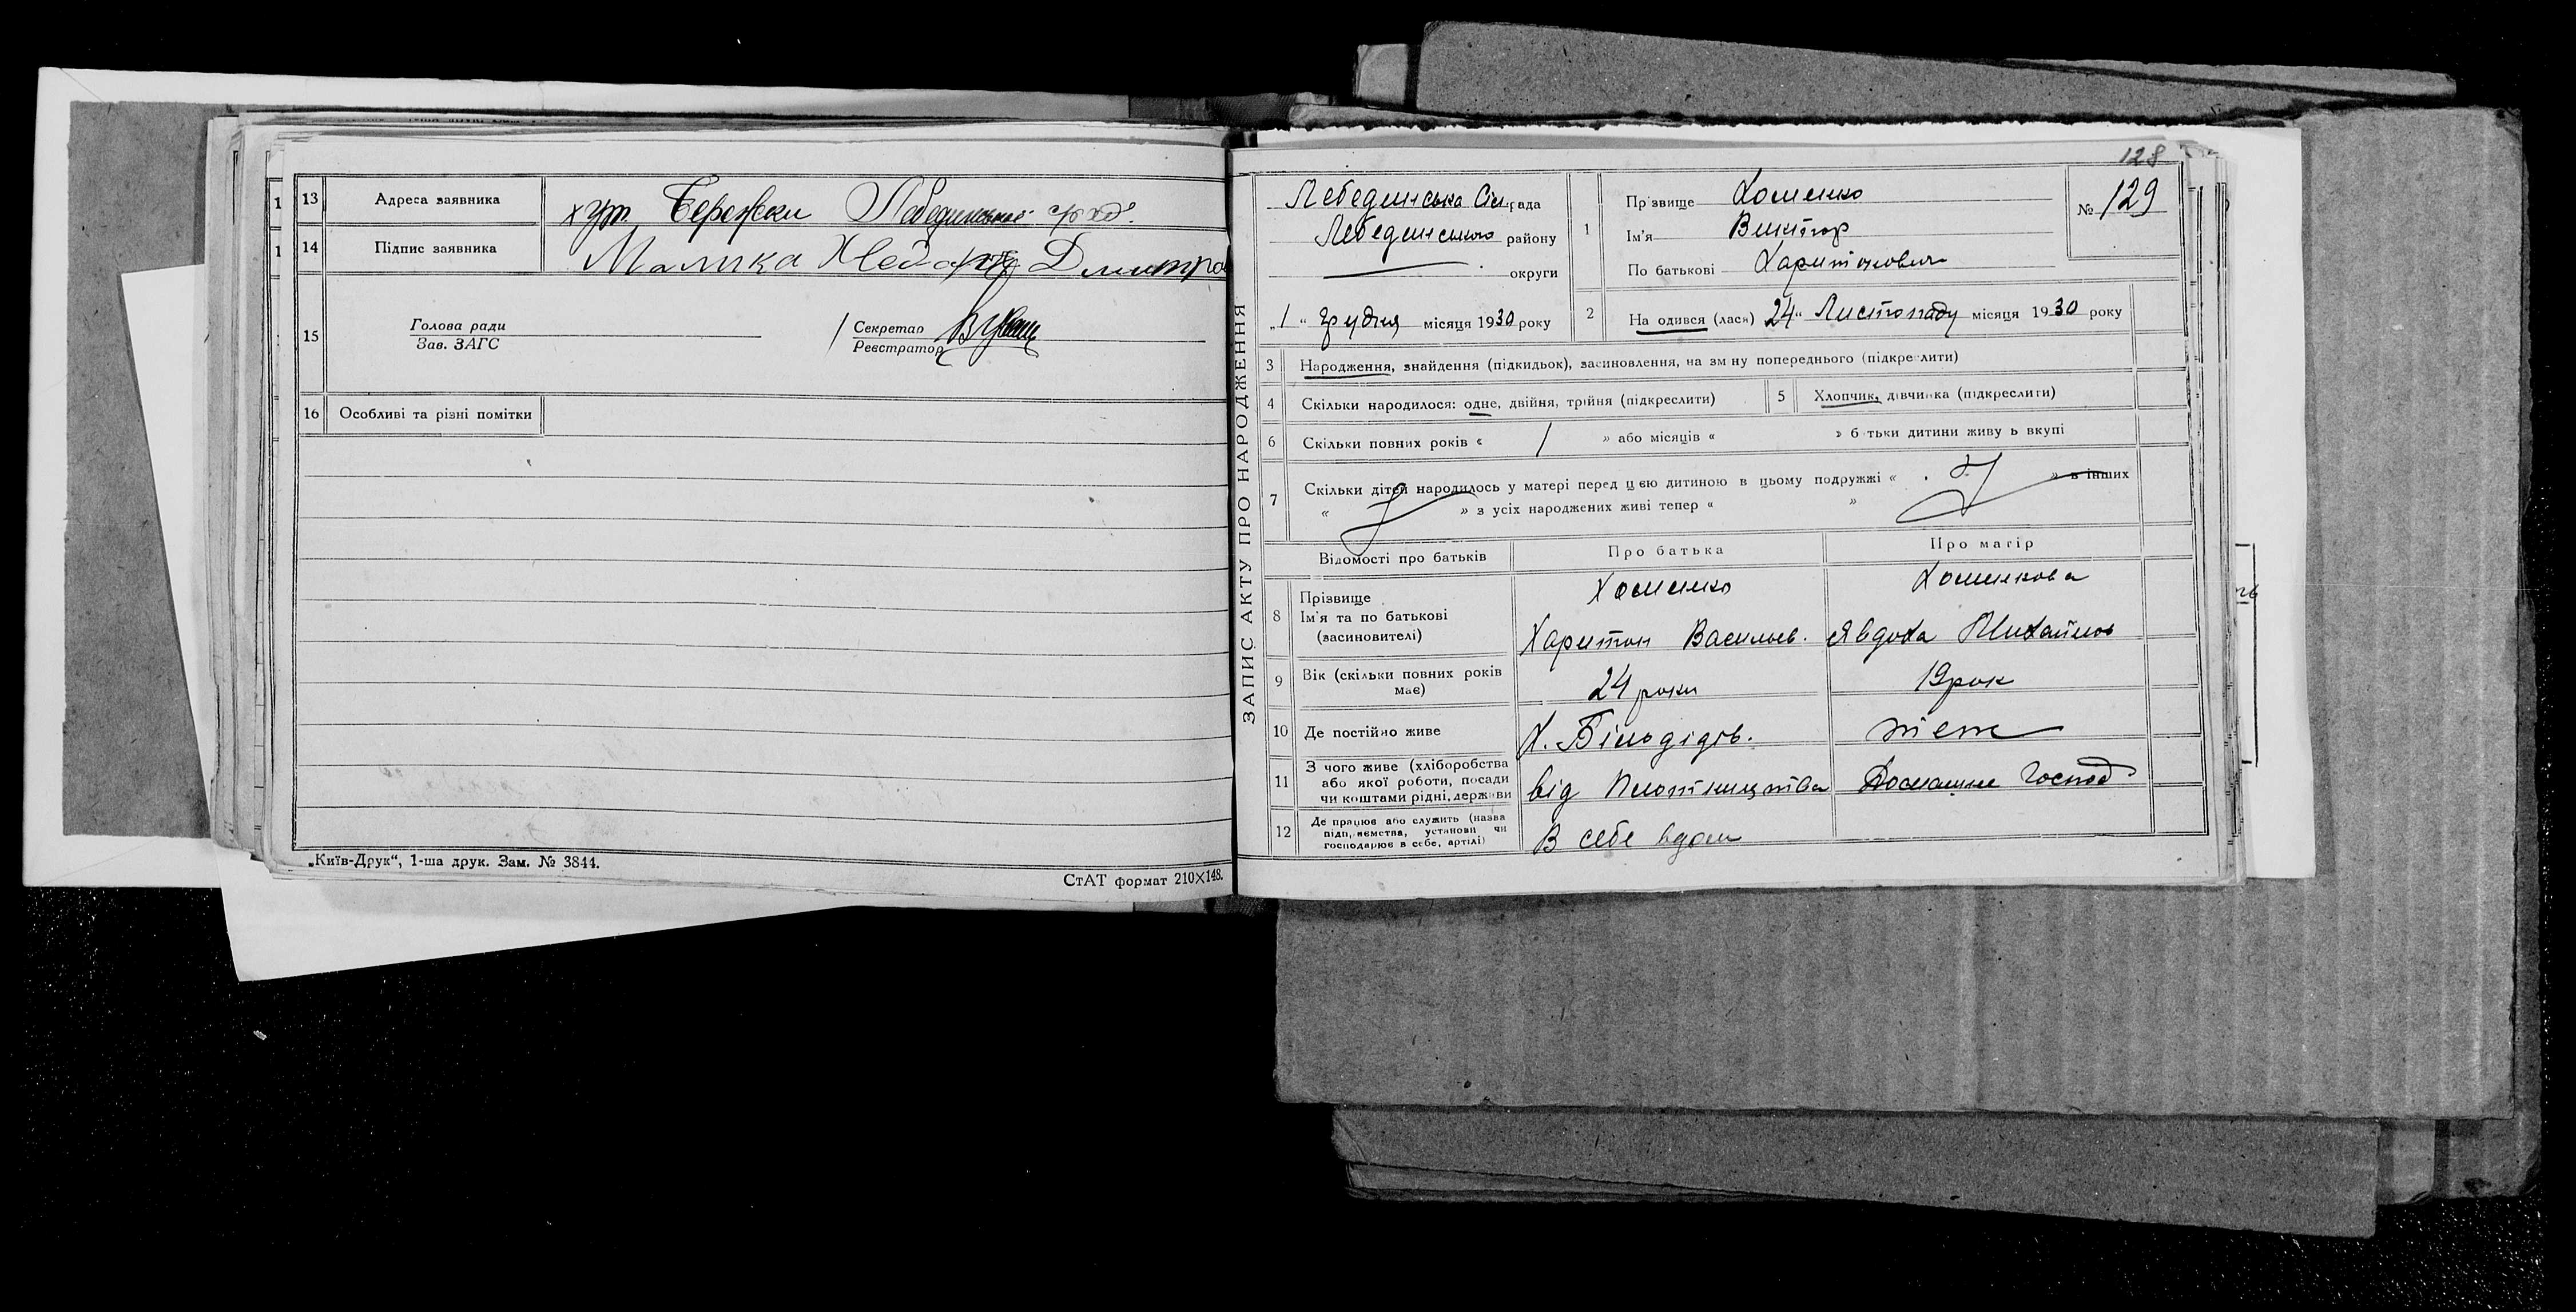 13 Адреса заявника хут. Бережки Лебединської с/рад.
14 Підпис заявника Малика Дмитро
15 Голова ради
Зав. ЗАГС
Секретар
Реєстратор
16 Особливі та різні помітки
„Київ-Друк“, 1-ша друк. Зам. № 3844.
СтАТ формат 210×148.
ЗАПИС АКТУ ПРО НАРОДЖЕННЯ
128
Лебединська Сіл.рада
Лебединського району
округи
„1“ Грудня місяця 1930 року
1 Прізвище Хоменко
Ім'я Виктор
По батькові Харитонович
№ 129
2 На одився (лася) 24“ Листопаду місяця 1930 року
3 Народження, знайдення (підкидьок), засиновлення, на зм ну попереднього (підкреслити)
4 Скільки народилося: одне, двійня, трійня (підкреслити)
5 Хлопчик, дівчинка (підкреслити)
6 Скільки повних років « 1 » або місяців « » б тьки дитини живу ь вкупі
7 Скільки дітей народилось у матері перед цією дитиною в цьому подружжі « » в інших
« » з усіх народжених живі тепер « »
Відомості про батьків Про батька Про матір
8 Прізвище Хоменко Хоменкова
Ім'я та по батькові
(засиновителі) Харитон Васильев. Явдоха Михайлов
9 Вік (скільки повних років
має) 24 роки 19 рок
10 Де постійно живе Х. Білодідів. теж
11 З чого живе (хліборобства
або якої роботи, посади
чи коштами рідні, держави від Плотництва Домашнє Господ
12 Де працює або служить (назва
підприємства, установи чи
господарює в себе, артілі) В себе вдом